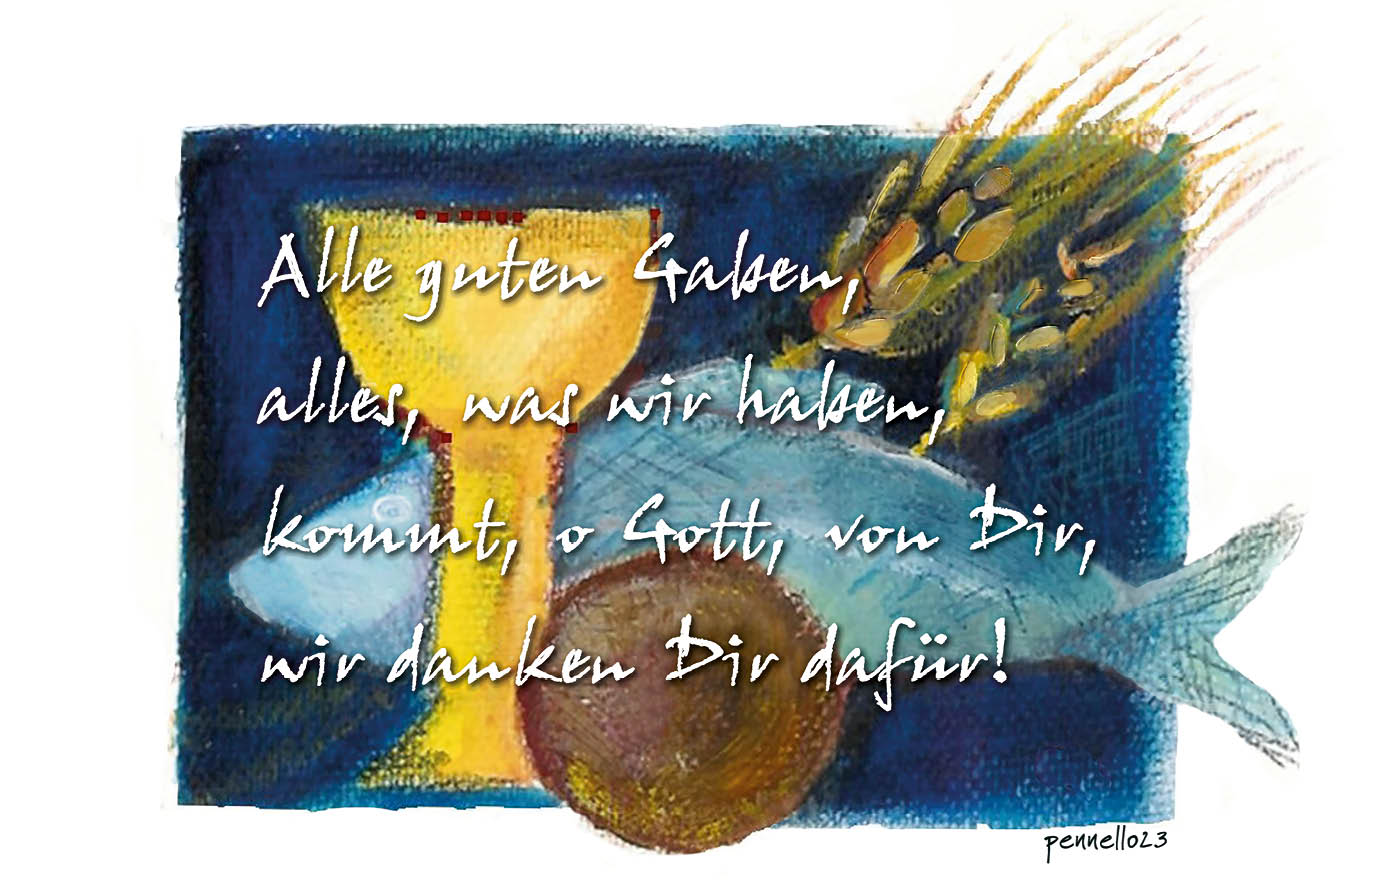 Alle guten Gaben,
alles, was wir haben,
kommt, o Gott, von Dir,
wir danken Dir dafür!
pennello23